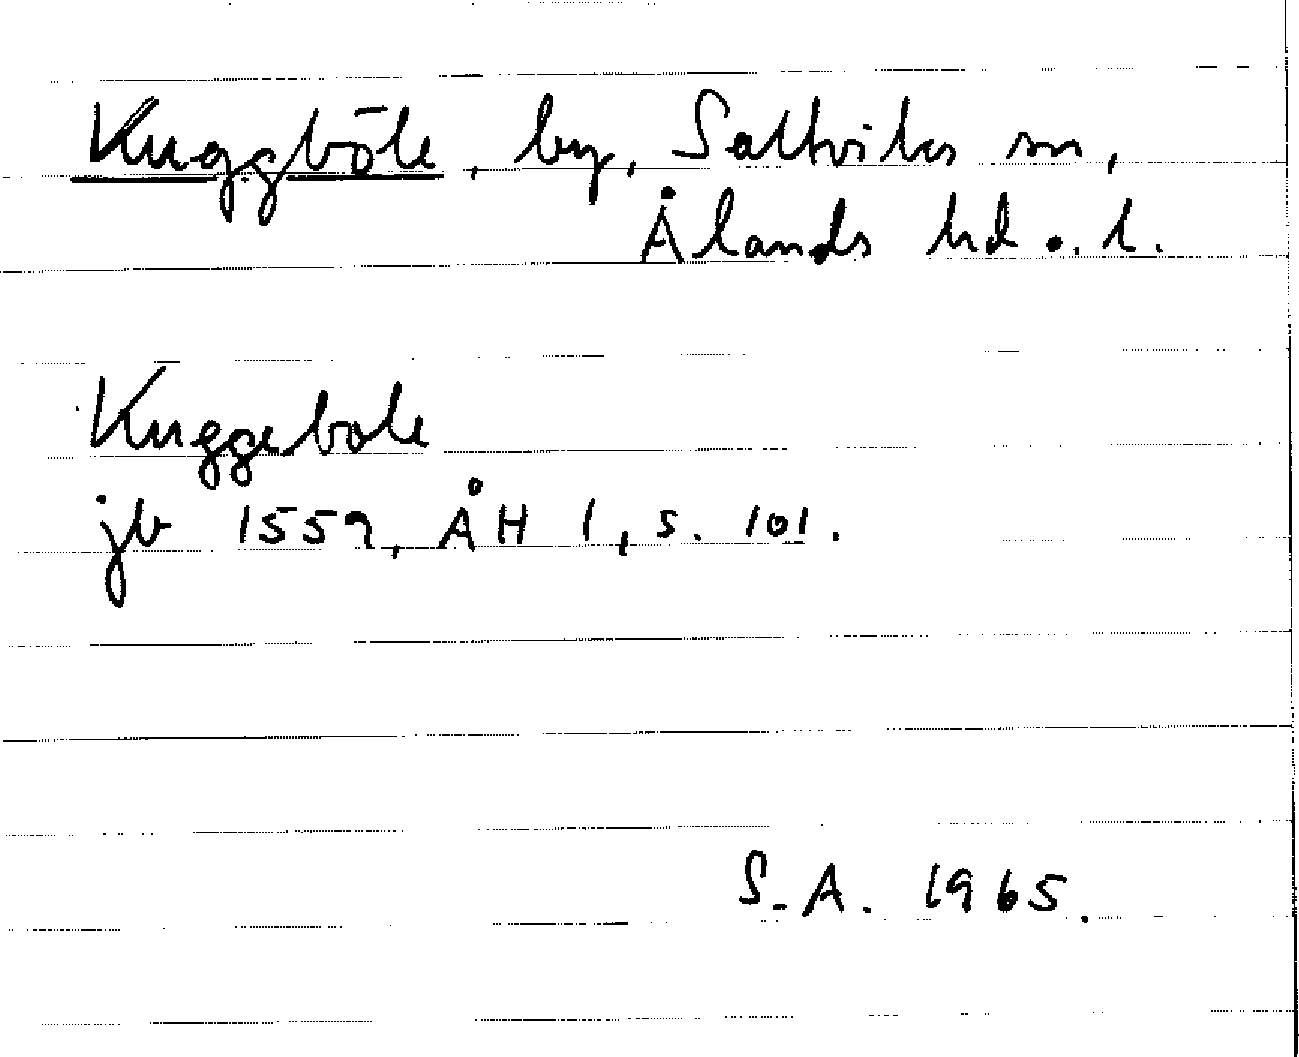 Kuggböle, by, Saltviks sn,
Ålands hd o. l.
Kuggebole
jb 1559, ÅH 1, s. 101.
S-A. 1965.